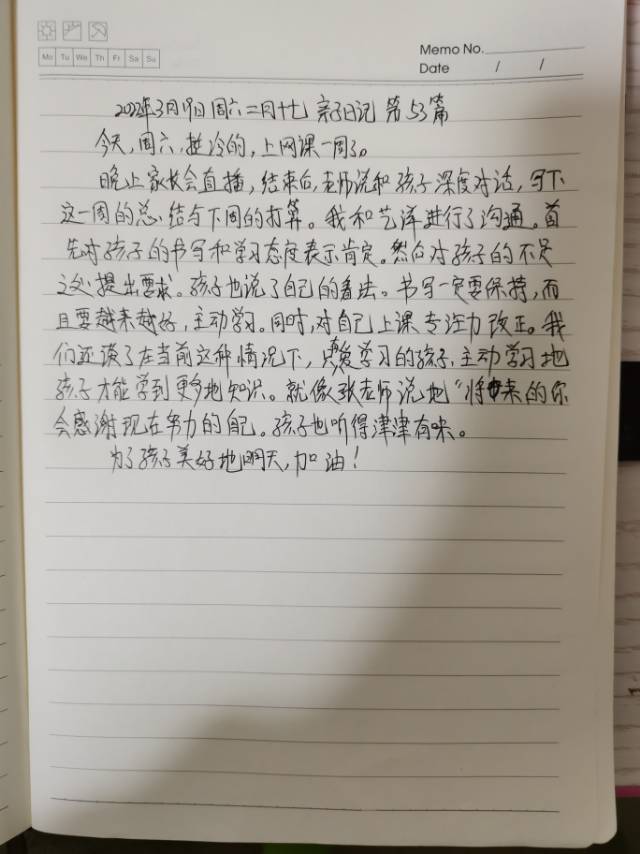 Memo No.
Mo Tu We Th Fr Sa Su
Date / /
2022年3月19日 周六 二月十七 亲子日记 第53篇
今天,周六,挺冷的,上网课一周了。
晚上家长会直播,结束后,老师说和孩子深度对话,写下
这一周的总结与下周的打算。我和艺泽进行了沟通。首
先对孩子的书写和学习态度表示肯定。然后对孩子的不足
之处提出要求。孩子也说了自己的看法。书写一定要保持,而
且要越来越好,主动学习。同时,对自己上课专注力改正。我
们还谈了在当前这种情况下,只有爱学习的孩子,主动学习地
孩子才能学到更多地知识。就像张老师说地“将来的你
会感谢现在努力的自己。孩子也听得津津有味。
为了孩子美好地明天,加油!